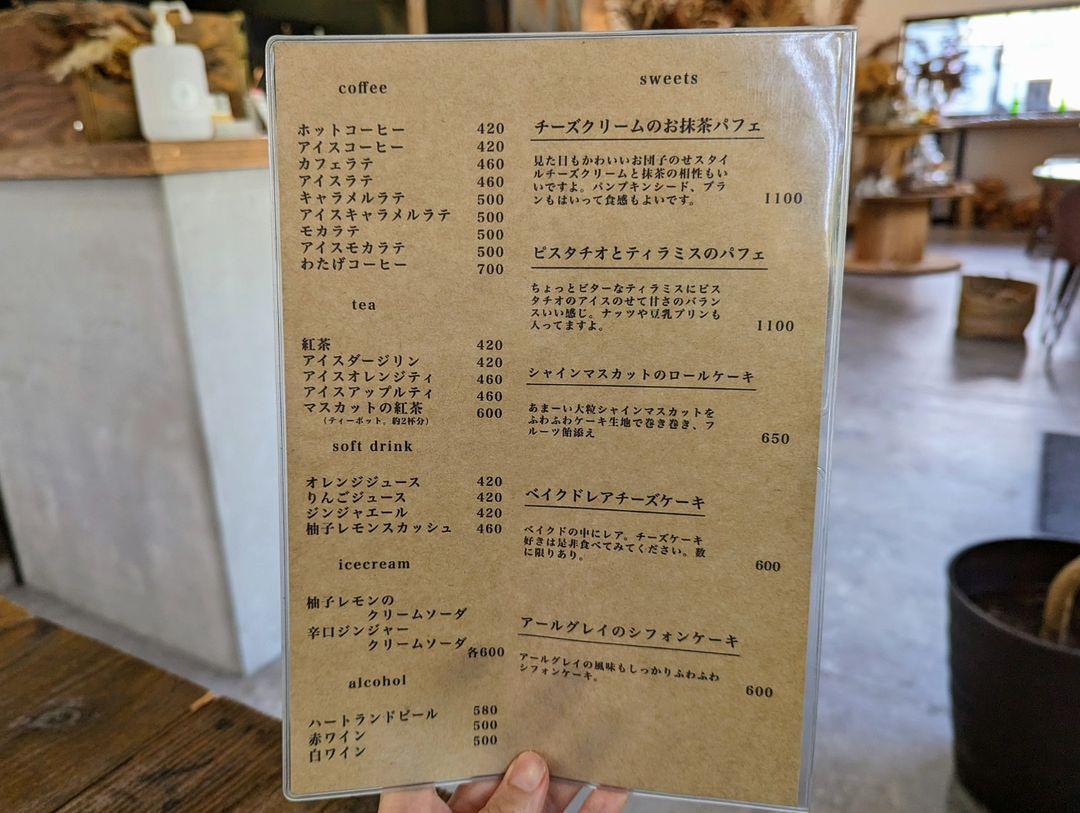 coffee
ホットコーヒー 420
アイスコーヒー 420
カフェラテ 460
アイスラテ 460
キャラメルラテ 500
アイスキャラメルラテ 500
モカラテ 500
アイスモカラテ 500
わたげコーヒー 700
tea
紅茶 420
アイスダージリン 420
アイスオレンジティ 460
アイスアップルティ 460
マスカットの紅茶 600
（ティーポット。約2杯分）
soft drink
オレンジジュース 420
りんごジュース 420
ジンジャエール 420
柚子レモンスカッシュ 460
icecream
柚子レモンの
クリームソーダ
辛口ジンジャー
クリームソーダ 各600
alcohol
ハートランドビール 580
赤ワイン 500
白ワイン 500
sweets
チーズクリームのお抹茶パフェ
見た目もかわいいお団子のせスタイ
ルチーズクリームと抹茶の相性もい
いですよ。パンプキンシード、ブラ
ンもはいって食感もよいです。 1100
ピスタチオとティラミスのパフェ
ちょっとビターなティラミスにピス
タチオのアイスのせて甘さのバラン
スいい感じ。ナッツや豆乳プリンも
入ってますよ。 1100
シャインマスカットのロールケーキ
あまーい大粒シャインマスカットを
ふわふわケーキ生地で巻き巻き、フ
ルーツ飴添え 650
ベイクドレアチーズケーキ
ベイクドの中にレア。チーズケーキ
好きは是非食べてみてください。数
に限りあり。 600
アールグレイのシフォンケーキ
アールグレイの風味もしっかりふわふわ
シフォンケーキ。 600